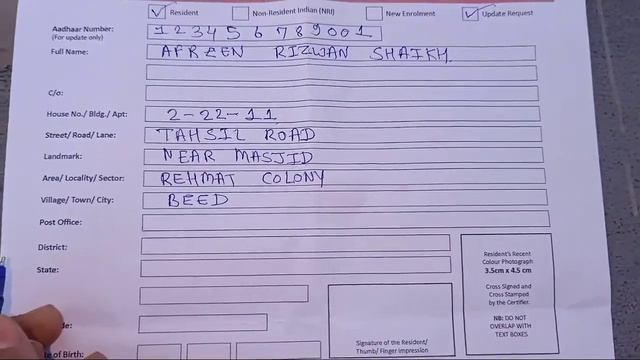 Resident Non-Resident Indian (NRI) New Enrolment Update Request
Aadhaar Number: 123456789001
(For update only)
Full Name: AFREEN RIZWAN SHAIKH.
C/o:
House No./ Bldg./ Apt: 2-22-11
Street/ Road/ Lane: TAHSIL ROAD
Landmark: NEAR MASJID
Area/ Locality/ Sector: REHMAT COLONY
Village/ Town/ City: BEED
Post Office:
District:
State:
Resident's Recent
Colour Photograph
3.5cm x 4.5 cm
Cross Signed and
Cross Stamped
by the Certifier.
NB: DO NOT
OVERLAP WITH
TEXT BOXES
Signature of the Resident/
Thumb/ Finger Impression
of Birth: